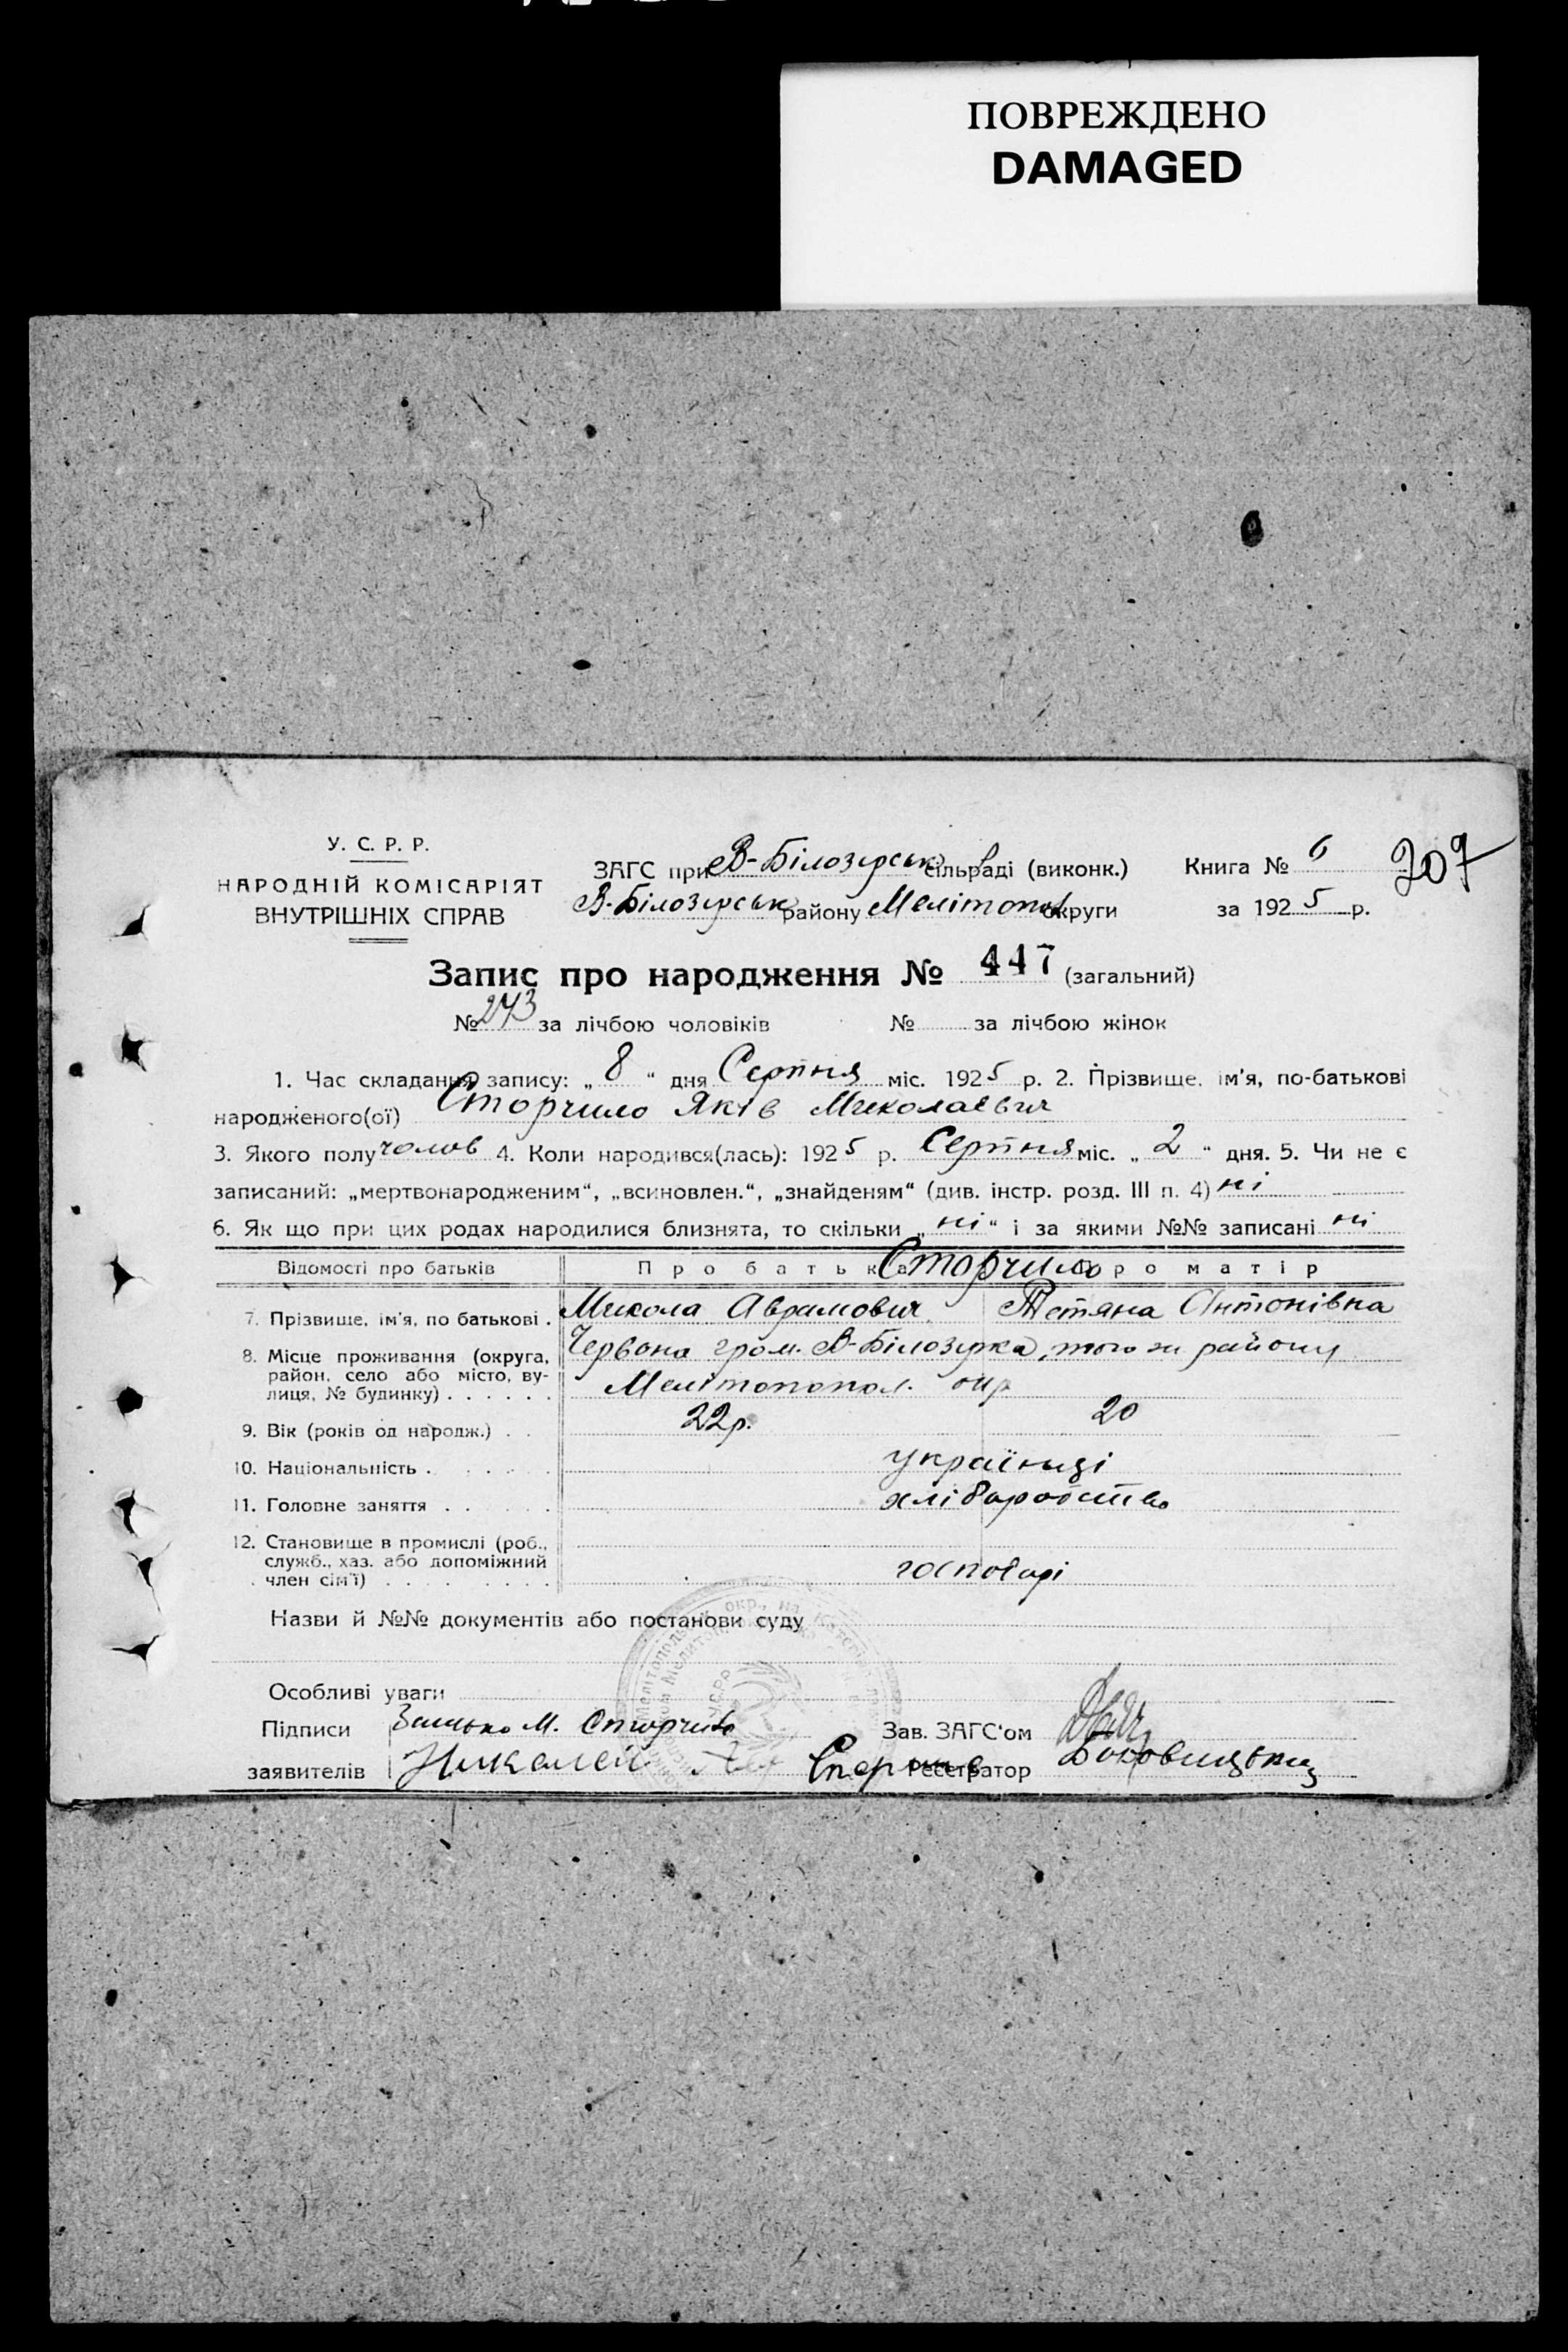 ПОВРЕЖДЕНО
DAMAGED
У. С. Р. Р.
НАРОДНІЙ КОМІСАРІЯТ
ВНУТРІШНІХ СПРАВ
ЗАГС при В-Білозерськ сільраді (виконк.)
В-Білозерськ району Мелітопол округи
Книга № 6
за 1925 р.
207
Запис про народження № 447 (загальний)
№ 273 за лічбою чоловіків № за лічбою жінок
1. Час складання запису: „ 8 “ дня Серпня міс. 1925 р. 2. Прізвище, ім'я, по-батькові
народженого(ої) Сторчило Яків Миколаєвич
3. Якого полу чолов 4. Коли народився(лась): 1925 р. Серпня міс. „ 2 “ дня. 5. Чи не є
записаний: „мертвонародженим“, „всиновлен.“, „знайденям“ (див. інстр. розд. III п. 4) ні
6. Як що при цих родах народилися близнята, то скільки „ ні “ і за якими №№ записані ні
Відомості про батьків Про батька Сторчило Про матір
7. Прізвище, ім'я, по батькові . Микола Аврамович Тетяна Антонівна
8. Місце проживання (округа, район, село або місто, вулиця, № будинку) . . . . . . Червона гром. В-Білозерка, того ж району
Мелітополопол. окр
9. Вік (років од народж.) . . 22р. 20
10. Національність . українці
11. Головне заняття . . хліборобство
12. Становище в промислі (роб.,
служб., хаз. або допоміжний
член сім'ї) господарі
Назви й №№ документів або постанови суду
Особливі уваги
Підписи М. Сторчило Зав. ЗАГС'ом
заявителів Николай Сторчило Реєстратор